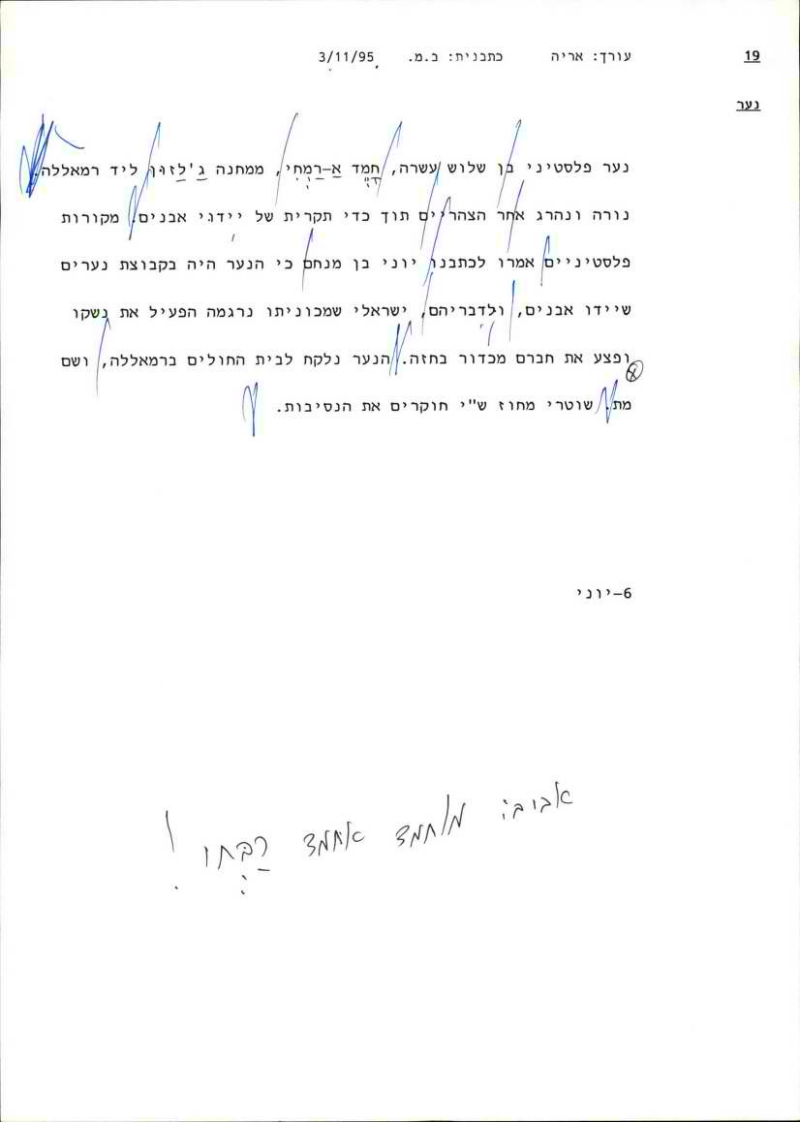 19
עורך: אריה כתבנית: ב.מ. 3/11/95
נער
נער פלסטיני בן שלוש עשרה, חָמֶד אַ-רַמְחִי, ממחנה גַ'לַזוּן ליד רמאללה.
נורה ונהרג אחר הצהריים תוך כדי תקרית של יידוי אבנים. מקורות
פלסטיניים אמרו לכתבנו יוני בן מנחם כי הנער היה בקבוצת נערים
שיידו אבנים, ולדבריהם, ישראלי שמכוניתו נרגמה הפעיל את נשקו
ופצע את חברם מכדור בחזה. הנער נלקח לבית החולים ברמאללה, ושם
מת. שוטרי מחוז ש"י חוקרים את הנסיבות.
6-יוני
מוחמד אחמד !